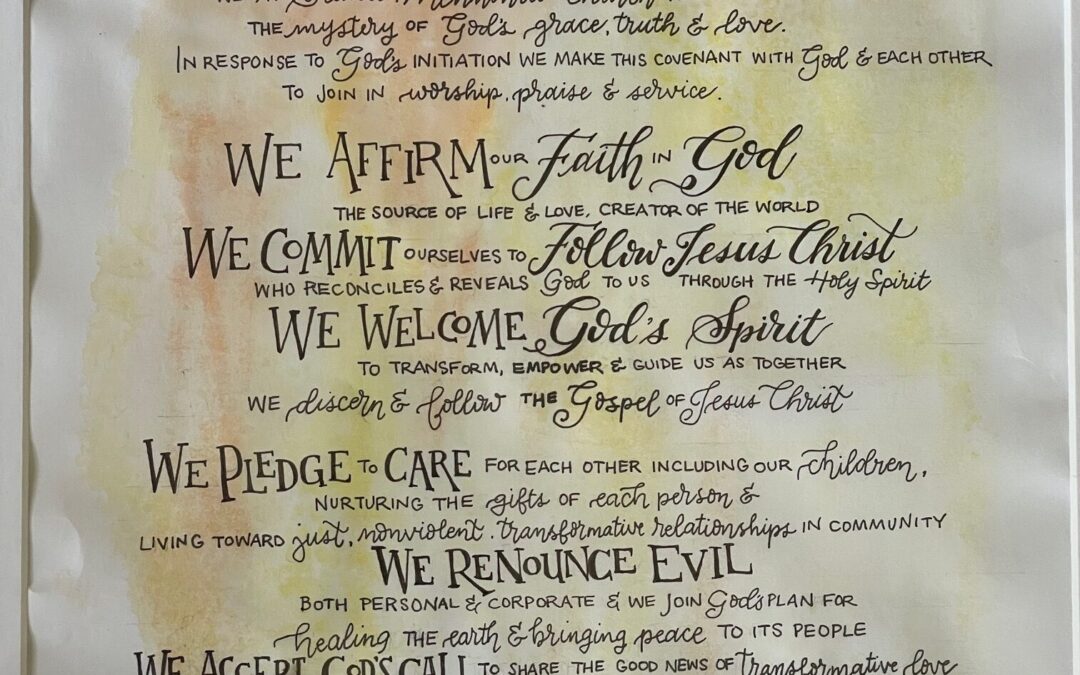 THE mystery OF God's grace, truth & love.
IN RESPONSE TO God's INITIATION WE MAKE THIS COVENANT WITH God & EACH OTHER
TO JOIN IN worship, praise & service.
WE AFFIRM OUR Faith IN God
THE SOURCE OF LIFE & LOVE, CREATOR OF THE WORLD
WE COMMIT OURSELVES TO Follow Jesus Christ
WHO RECONCILES & REVEALS God TO US THROUGH THE Holy Spirit
WE WELCOME God's Spirit
TO TRANSFORM, EMPOWER & GUIDE US AS TOGETHER
WE discern & follow THE Gospel OF Jesus Christ
WE PLEDGE TO CARE FOR EACH OTHER INCLUDING OUR children,
NURTURING THE gifts OF each person &
LIVING TOWARD just, nonviolent, transformative relationships IN COMMUNITY
WE RENOUNCE EVIL
BOTH PERSONAL & CORPORATE & WE JOIN God's PLAN FOR
healing THE earth & bringing peace TO ITS PEOPLE
WE ACCEPT GOD'S CALL TO SHARE THE GOOD NEWS OF transformative love